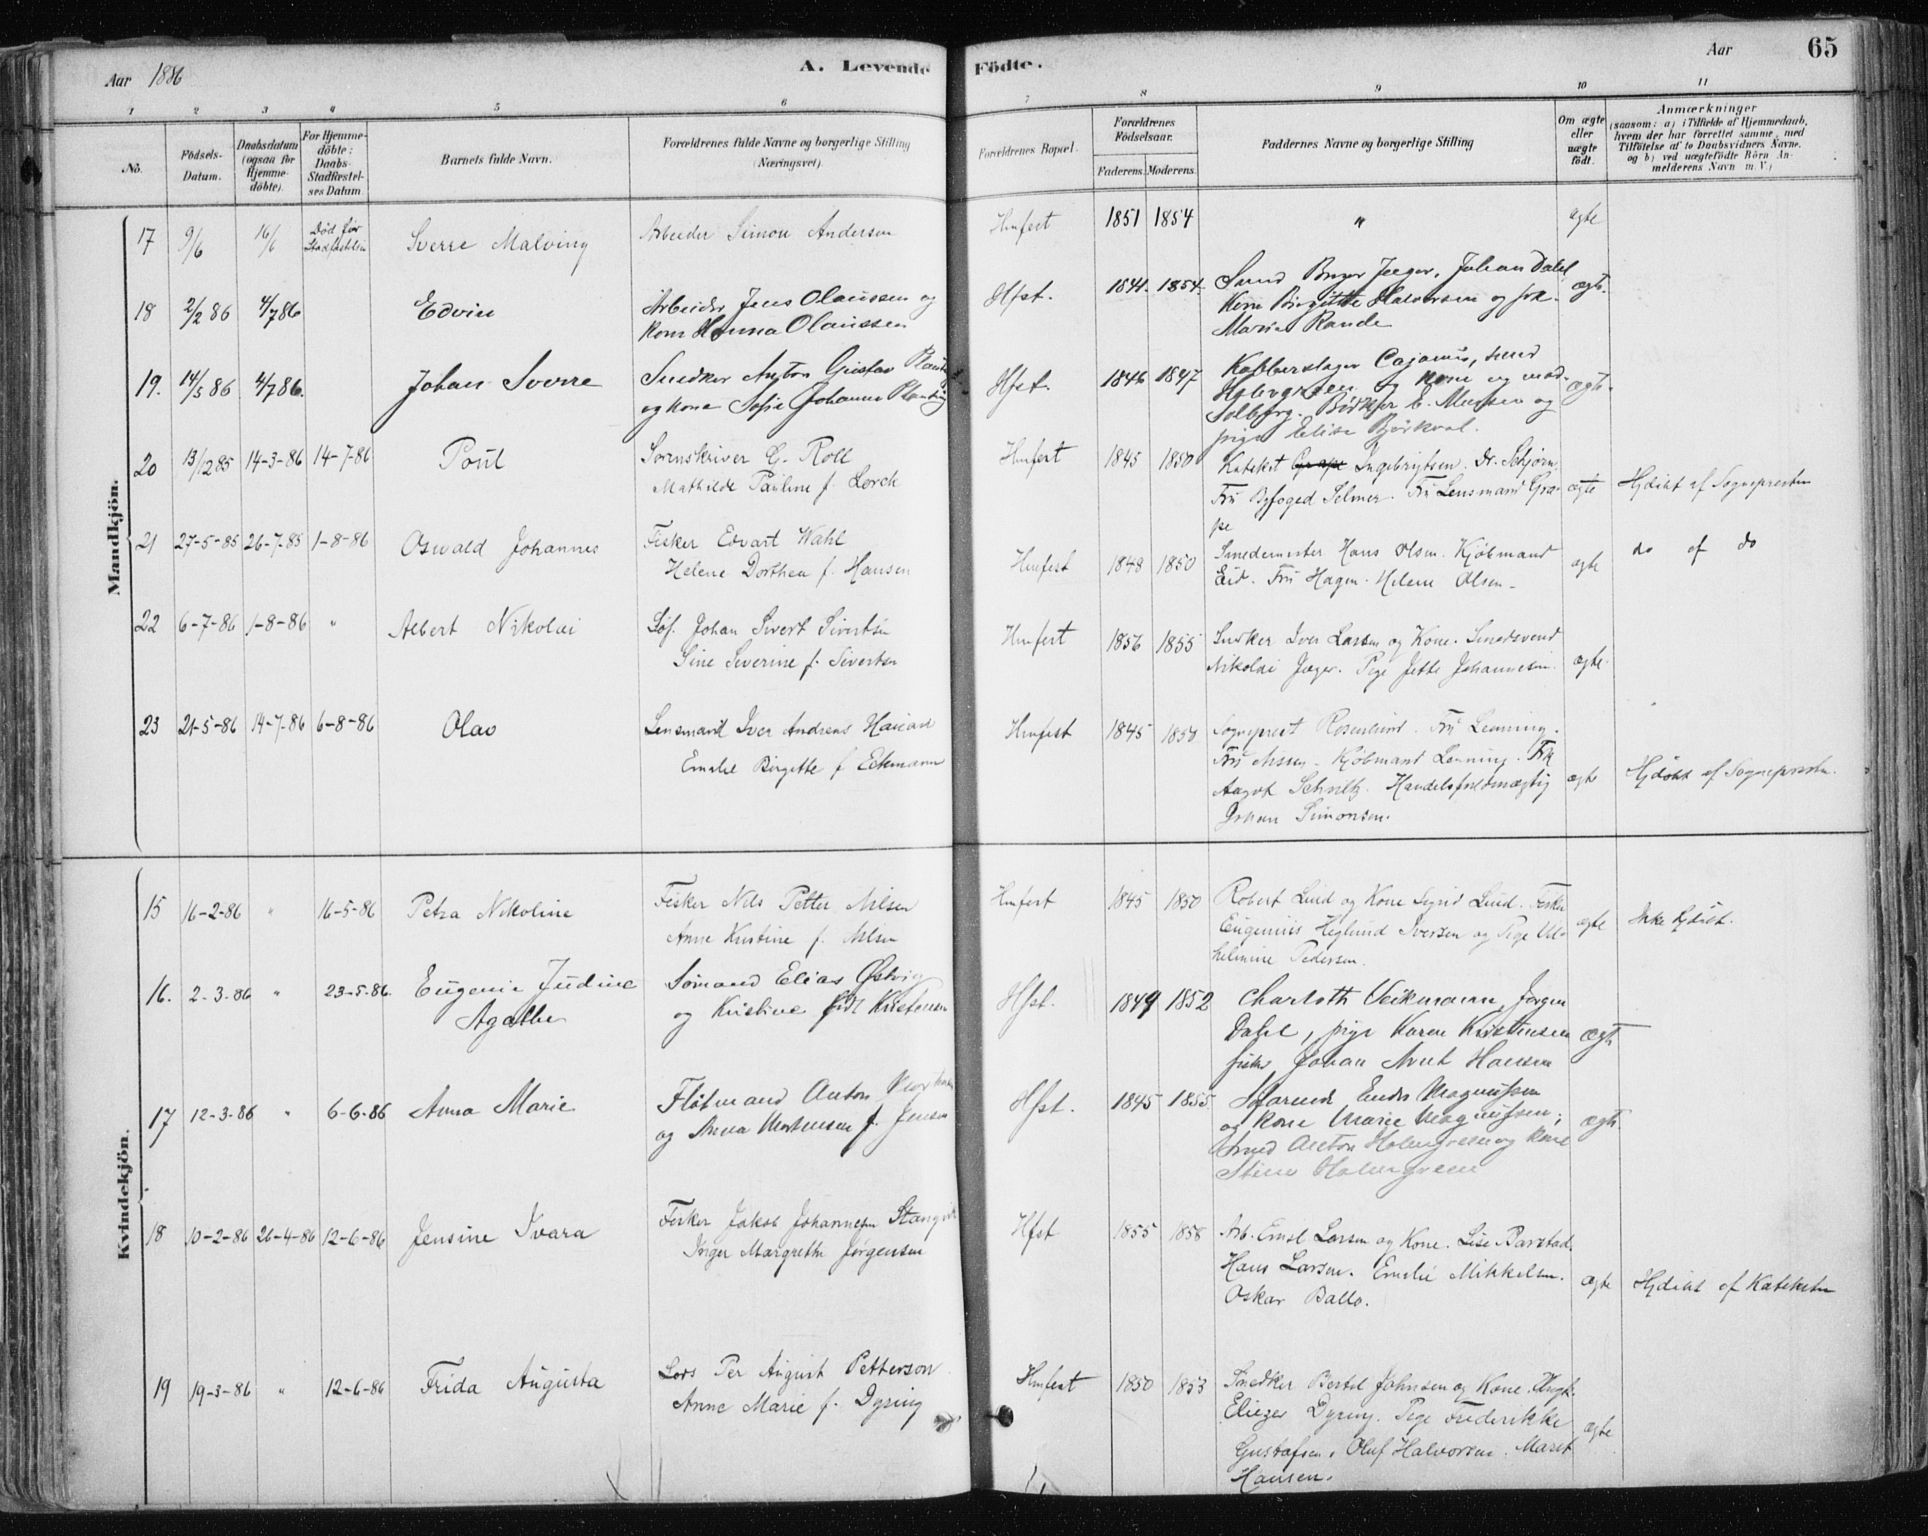 Aar 1886
A. Levende Födte.
Aar
65
1 2 3 4 5 6 7 8 9 10 11
No.
Födsels-Datum.
Daabsdatum (ogsaa for Hjemme-döbte).
For Hjemme-döbte: Daabs-Stadfæstel-ses Datum
Barnets fulde Navn.
Forældrenes fulde Navne og borgerlige Stilling (Næringsvei).
Forældrenes Bopæl.
Forældrenes Födselsaar.
Faderens. Moderens.
Faddernes Navne og borgerlige Stilling
Om ægte eller uægte födt.
Anmærkninger
(saasom: a) i Tilfælde af Hjemmedaab,
hvem der har forrettet samme, med
Tilföielse af to Daabsvidners Navne,
og b) ved uægtefödte Börn An-
melderens Navn m. V.)
Mandkjön.
17 9/6 16/6 Død før Stadfæstelsen Sverre Malving Arbeider Simon Andersen Hmfest 1851 1854 " ægte
18 2/2 86 4/7 86 Edvin Arbeider Jens Olaussen og
Kone Hanna Olaussen
Hfst. 1841. 1854. Smed Jæger, Johan Dahl
Kone Birgitte Halvorsen og frk.
Marie Rande
ægte.
19. 14/5 86 4/7 86. Johan Sverre Snedker Anton Gustav
og Kone Sofie Johanne
Hfst. 1846 1847 Kobberslager Cajanus, smed
Holmgreen og kone og
Solberg. Bødker E. og
pige Elise
ægte.
20 13/12 85 14-3-86 14-7-86 Poul Sorenskriver G. Roll
Mathilde Pauline f. Lorck
Hmfest 1845 1850 Katekst Ingebrigtsen. Dr.
Fru Byfoged Selmer. Fru Lensmand Gra-
pe
ægte Hjdöbt af Sognepresten
21 27-5-85 26-7-85 1-8-86 Oswald Johannes Fisker Edvart Wahl
Helene Dorthea f. Hansen
Hmfest 1848 1850 Smedemester Hans Olsen. Kjöbmand
Eid. Fru Hagen. Helene Olsen.
ægte do af do
22 6-7-86 1-8-86 " Albert Nikolai Søf. Johan Sivert Sivertsen
Sine Severine f. Sivertsen
Hmfest 1856 1855 Snedker Iver Larsen og Kone. Smedsvend
Nikolai Jæger. Pige Jette Johannesen.
ægte.
23 21-5-86 14-7-86 6-8-86 Olav Lensmand Iver Andreas
Emelie Birgitte f. Eckmann
Hmfest 1845 1858 Sogneprest Rosenlund. Fru
Fru Kjöbmand Frk
Aagot Handelsfuldmægtig
Johan Simonsen.
ægte Hjdöbt af Sognepresten.
Kvindekjön.
15 16-2-86 " 16-5-86 Petra Nikoline Fisker Nils Petter Nilsen
Anne Kristine f. Nilsen
Hmfest 1845 1850 Robert Lund og Kone Sigrid Lund. Fisker
Eugenius Iversen og Pige Vil-
helmine Pedersen.
ægte Ikke Hjdöbt.
16. 2-3-86 " 23-5-86. Eugenie Judine
Agathe
Sømand Elias Østvig
og Kristine född Kristensen
Hfst. 1849 1852 Charlotte Jørgen
Dahl, pige Karen Kristensen
fisker Johan Arnt Hansen
ægte
17 12-3-86 " 6-6-86 Anna Marie Flötmand Anton
og Anna Mortensen f. Jensen
Hfst. 1845 1855 Magnussen
og Kone Marie Magnussen;
Smed Anton Holmgreen og kone
Stine Holmgreen
ægte
18 10-2-86 26-4-86 12-6-86 Jensine Ivara Fisker Jakob Johannesen
Inger Margrethe Jørgensen
Hfst 1855 1858 Arb. Emil Larsen og Kone. Lise
Hans Larsen. Emelie Mikkelsen.
Oskar Ballo.
ægte Hjdöbt af Kateketen
19 19-3-86 " 12-6-86 Frida Augusta Lods Per August Petterson
Anne Marie f. Dyring
Hmfest 1850 1853 Snedker Bertel Johnsen og Kone. Ungk.
Eliezer Dyring. Pige Frederikke
Gustafsen. Oluf Halvorsen. Marit
Hansen.
ægte